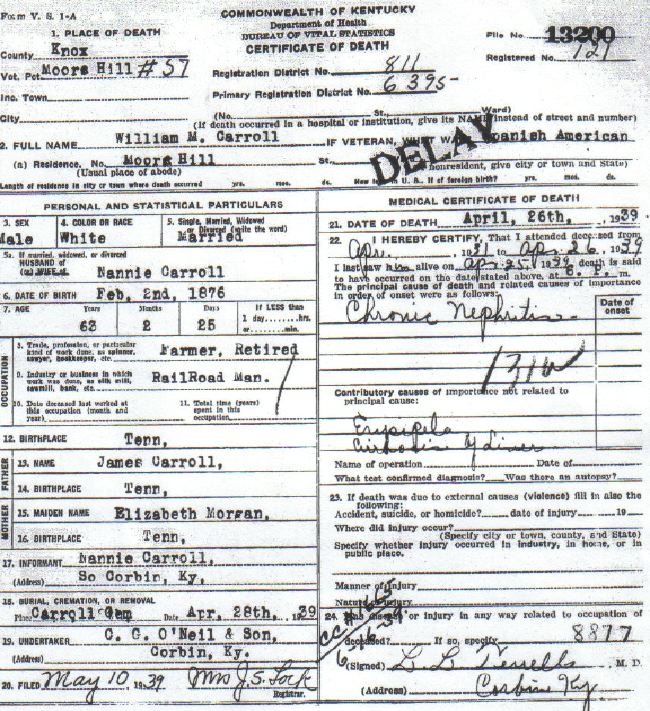 Form V. S. 1-A
COMMONWEALTH OF KENTUCKY
Department of Health
BUREAU OF VITAL STATISTICS
CERTIFICATE OF DEATH
File No. 13200
Registered No. 121
1. PLACE OF DEATH
County Knox
Vot. Pct Moore Hill #57
Inc. Town
City
Registration District No. 811
Primary Registration District No. 6395
(No. St., Ward)
(If death occurred in a hospital or institution, give its NAME instead of street and number)
2. FULL NAME William M. Carroll IF VETERAN, Spanish American
DELAY
(a) Residence. No. Moore Hill St.,
(Usual place of abode) nonresident, give city or town and State)
Length of residence in city or town where death occurred yrs. mos. ds. U. S. if of foreign birth? yrs. mos. ds.
PERSONAL AND STATISTICAL PARTICULARS
3. SEX
Male
4. COLOR OR RACE
White
5. Single, Married, Widowed
or Divorced (write the word)
Married
5a. If married, widowed, or divorced
HUSBAND of
(or) WIFE of Nannie Carroll
6. DATE OF BIRTH Feb. 2nd, 1876
7. AGE Years Months Days If LESS than
63 2 25 1 day, hrs.
or min.
OCCUPATION
8. Trade, profession, or particular
kind of work done, as spinner,
sawyer, bookkeeper, etc. Farmer, Retired
9. Industry or business in which
work was done, as silk mill,
sawmill, bank, etc. RailRoad Man.
10. Date deceased last worked at
this occupation (month and
year)
11. Total time (years)
spent in this
occupation
12. BIRTHPLACE Tenn,
FATHER
13. NAME James Carroll,
14. BIRTHPLACE Tenn,
MOTHER
15. MAIDEN NAME Elizabeth Morgan,
16. BIRTHPLACE Tenn,
17. INFORMANT Nannie Carroll,
(Address) So Corbin, Ky,
18. BURIAL, CREMATION, OR REMOVAL
Carroll Cem Date Apr. 28th, 1939
19. UNDERTAKER C. G. O'Neil & Son,
Corbin, Ky.
20. FILED May 10, 1939 Mrs J. S. Lock
Registrar.
MEDICAL CERTIFICATE OF DEATH
21. DATE OF DEATH April, 26th, 1939
22. I HEREBY CERTIFY, That I attended deceased from
Apr. 21 to Apr. 26, 1939
I last saw him alive on Apr. 25, 1939, death is said
to have occurred on the date stated above, at 6. P. m.
The principal cause of death and related causes of importance
in order of onset were as follows:
Date of
onset
Chronic Nephritis
131W
Contributory causes of importance not related to
principal cause:
Erysipela
Cirhosis of Liver
Name of operation Date of
What test confirmed diagnosis? Was there an autopsy?
23. If death was due to external causes (violence) fill in also the
following:
Accident, suicide, or homicide? date of injury 19
Where did injury occur?
(Specify city or town, county, and State)
Specify whether injury occurred in industry, in home, or in
public place.
Manner of injury
Nature of injury
24. Was disease or injury in any way related to occupation of
deceased? If so, specify 8877
(Signed) M. D.
(Address) Corbin Ky